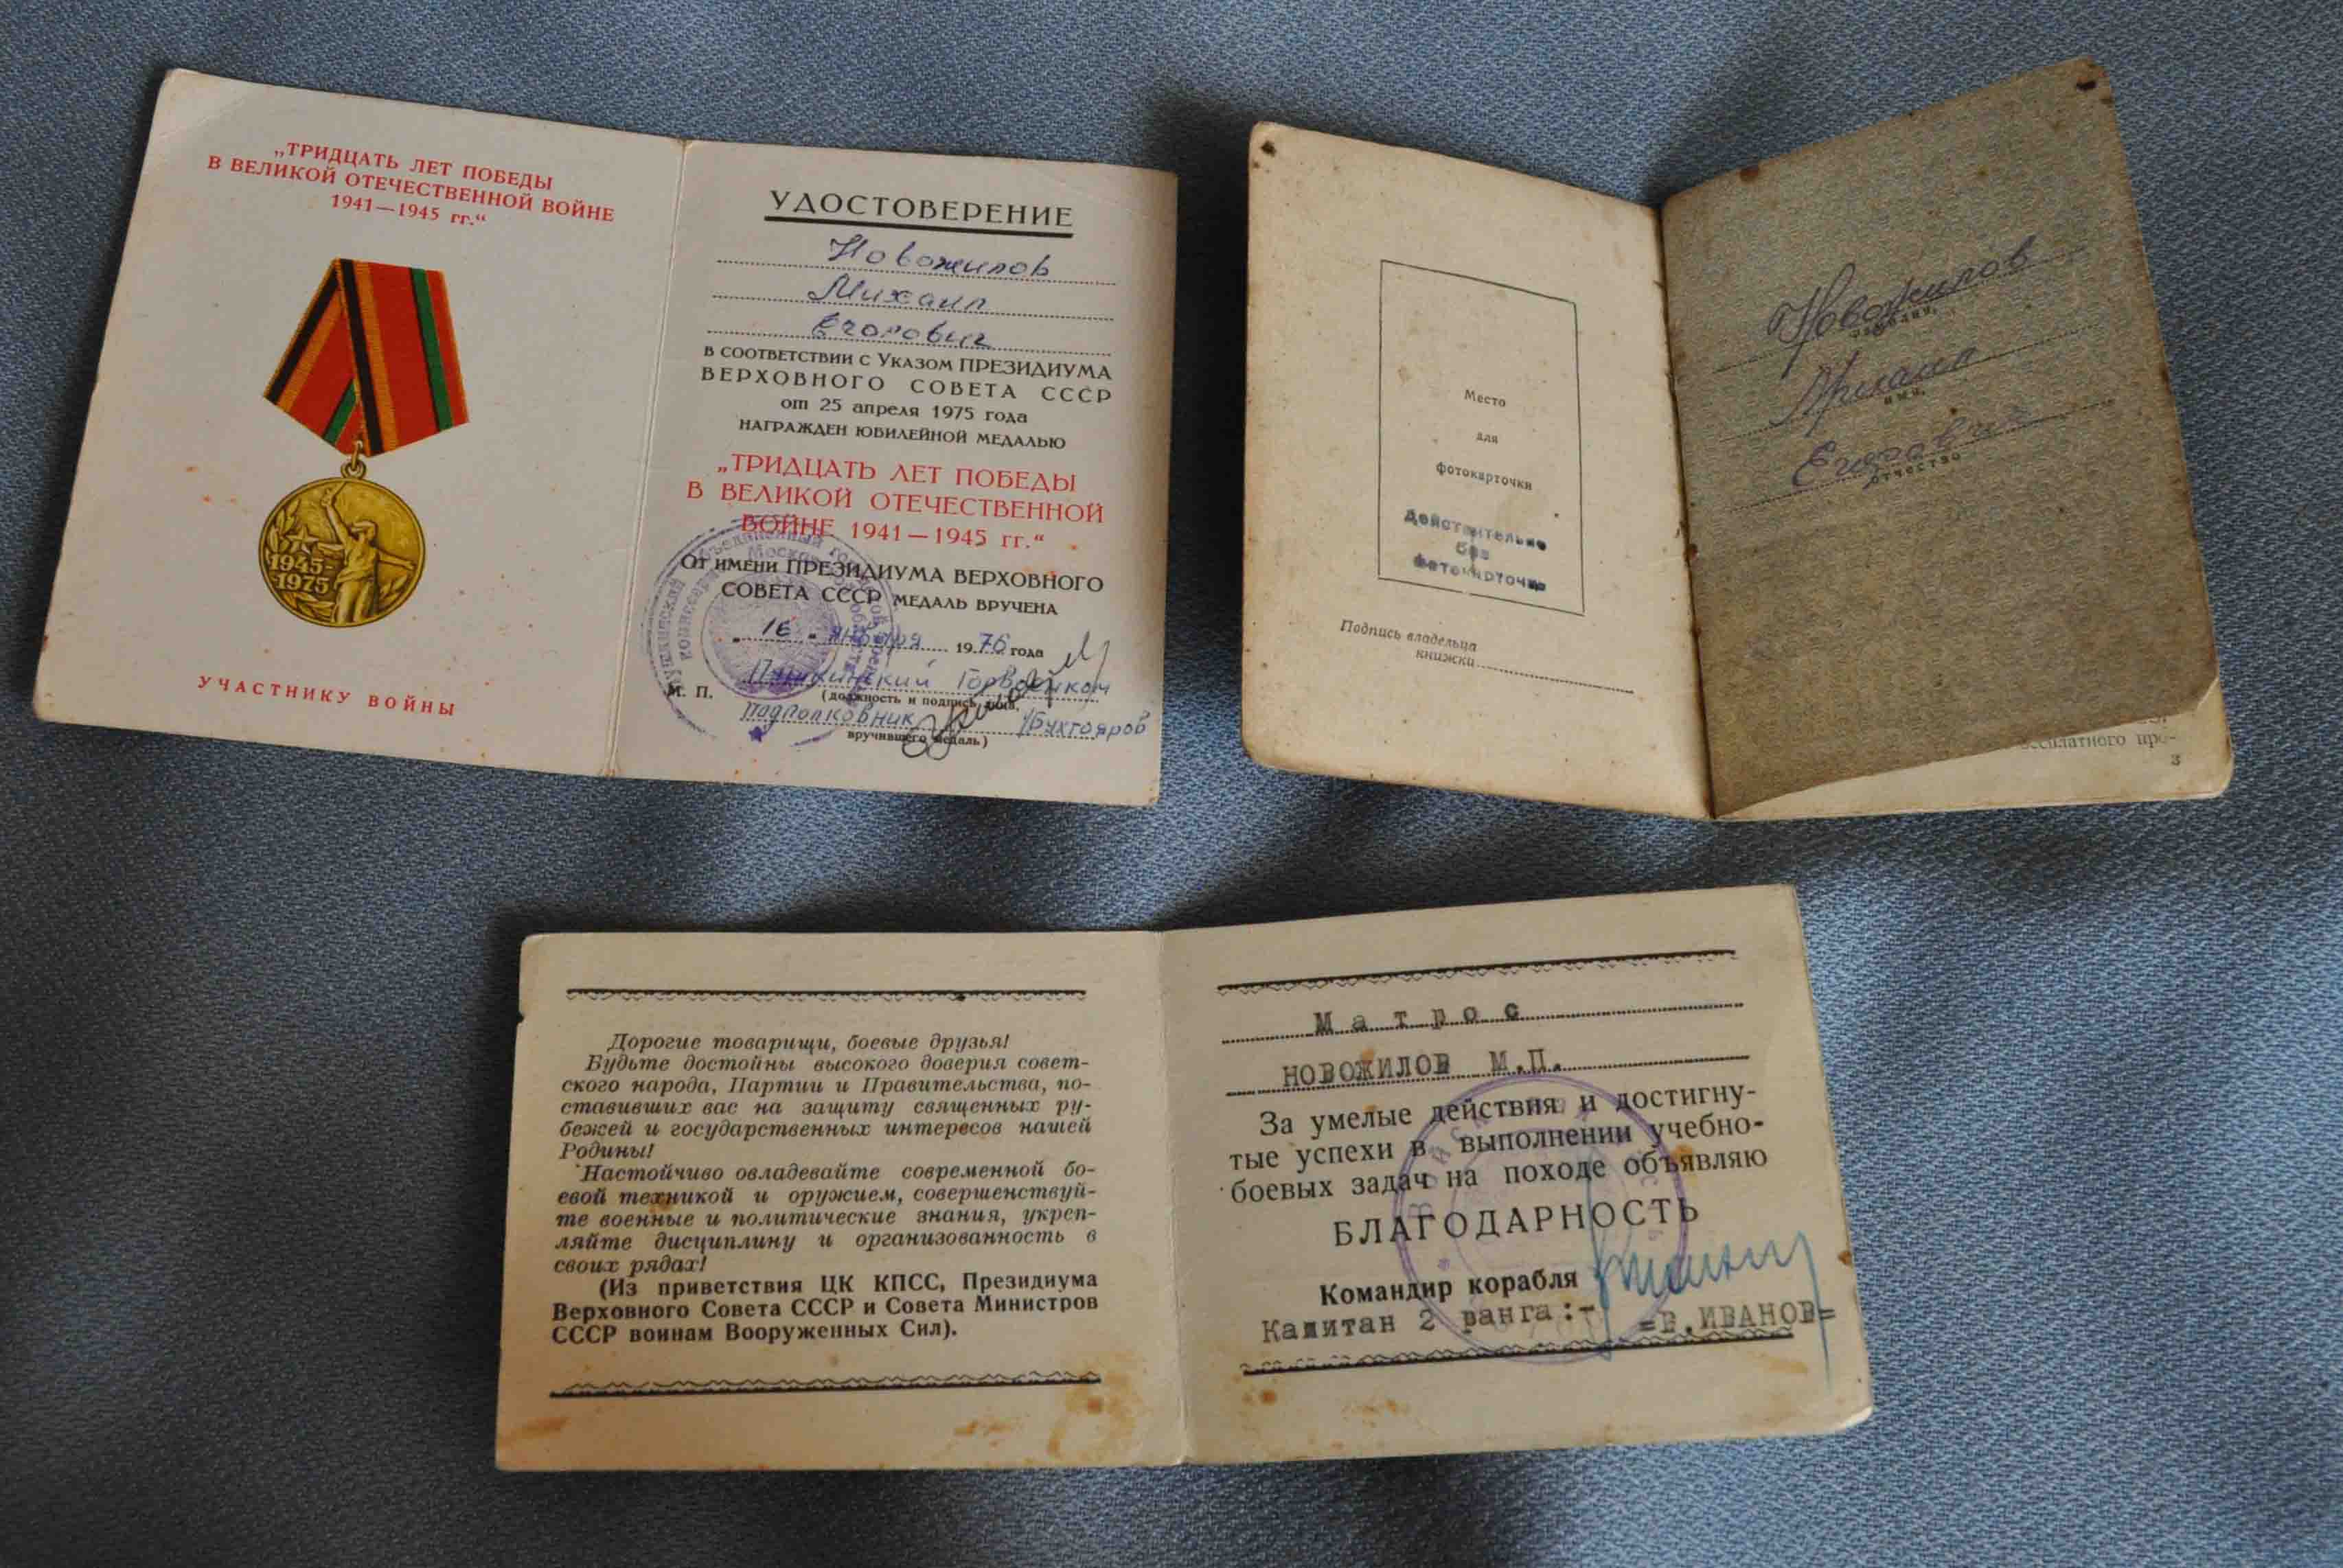 „ТРИДЦАТЬ ЛЕТ ПОБЕДЫ
В ВЕЛИКОЙ ОТЕЧЕСТВЕННОЙ ВОЙНЕ
1941—1945 гг.“
1945-
1975
УЧАСТНИКУ ВОЙНЫ
УДОСТОВЕРЕНИЕ
Новожилов
Михаил
Егорович
В СООТВЕТСТВИИ С УКАЗОМ ПРЕЗИДИУМА
ВЕРХОВНОГО СОВЕТА СССР
от 25 апреля 1975 года
НАГРАЖДЕН ЮБИЛЕЙНОЙ МЕДАЛЬЮ
„ТРИДЦАТЬ ЛЕТ ПОБЕДЫ
В ВЕЛИКОЙ ОТЕЧЕСТВЕННОЙ
ВОЙНЕ 1941—1945 гг.“
ОТ ИМЕНИ ПРЕЗИДИУМА ВЕРХОВНОГО
СОВЕТА СССР МЕДАЛЬ ВРУЧЕНА
„16“ января 1976 года
Пушкинский Горвоенком
М. П. (должность и подпись лица,
подполковник /Бухтояров
вручившего медаль)
Место
для
фотокарточки
Действительно
без
фотокарточки
Подпись владельца
книжки
Новожилов
фамилия,
Михаил
имя,
Егорович
отчество
бесплатного про-
3
Дорогие товарищи, боевые друзья!
Будьте достойны высокого доверия совет-
ского народа, Партии и Правительства, по-
ставивших вас на защиту священных ру-
бежей и государственных интересов нашей
Родины!
Настойчиво овладевайте современной бо-
евой техникой и оружием, совершенствуй-
те военные и политические знания, укреп-
ляйте дисциплину и организованность в
своих рядах!
(Из приветствия ЦК КПСС, Президиума
Верховного Совета СССР и Совета Министров
СССР воинам Вооруженных Сил).
Матрос
НОВОЖИЛОВ М.П.
За умелые действия и достигну-
тые успехи в выполнении учебно-
боевых задач на походе объявляю
БЛАГОДАРНОСТЬ
Командир корабля
Капитан 2 ранга:-
=В.ИВАНОВ=